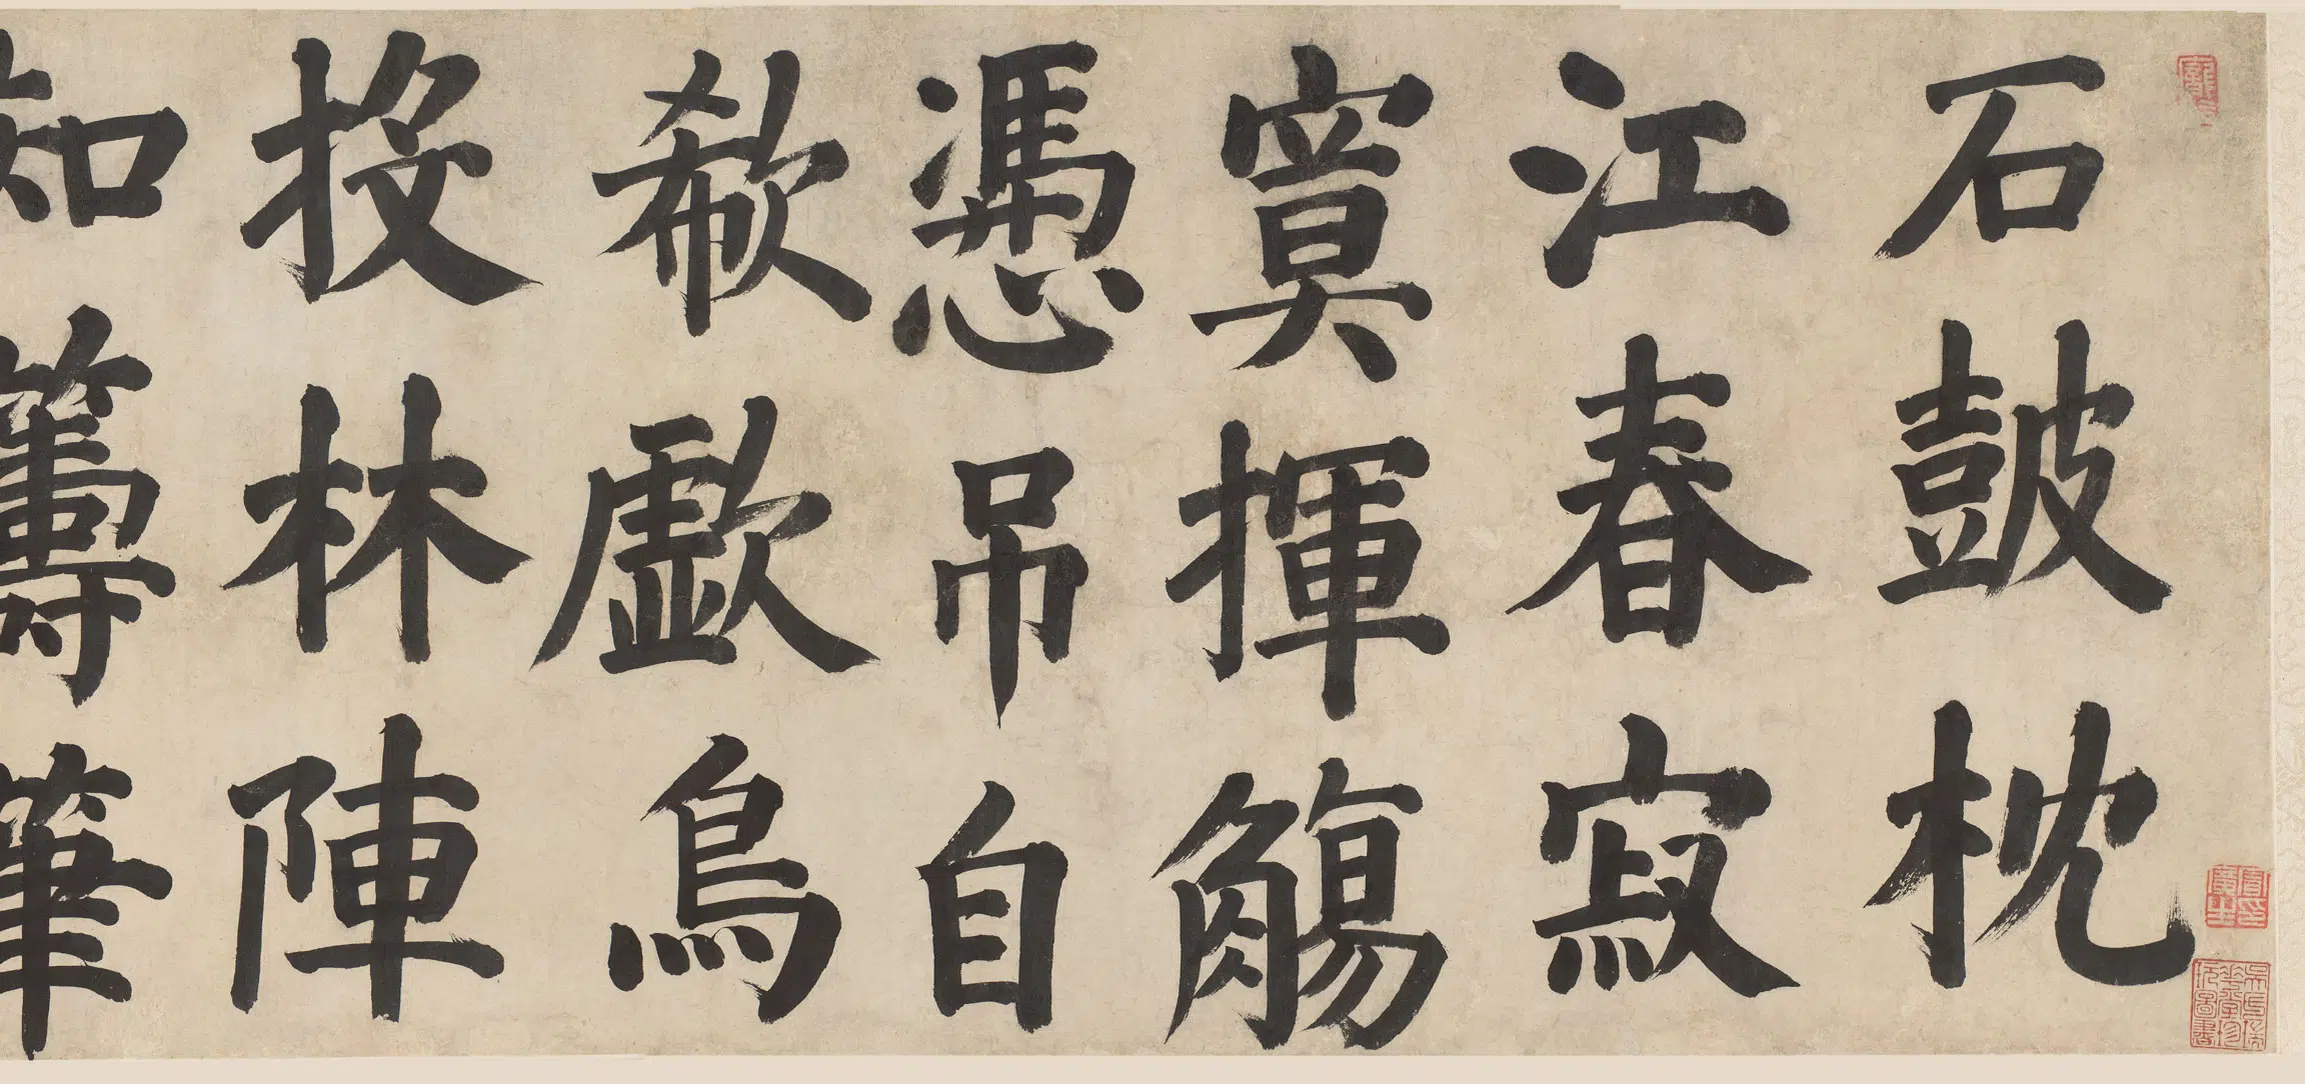 石鼓枕
江春寂
寞揮觴
憑吊自
欷歔鳥
投林陣
知籌筆